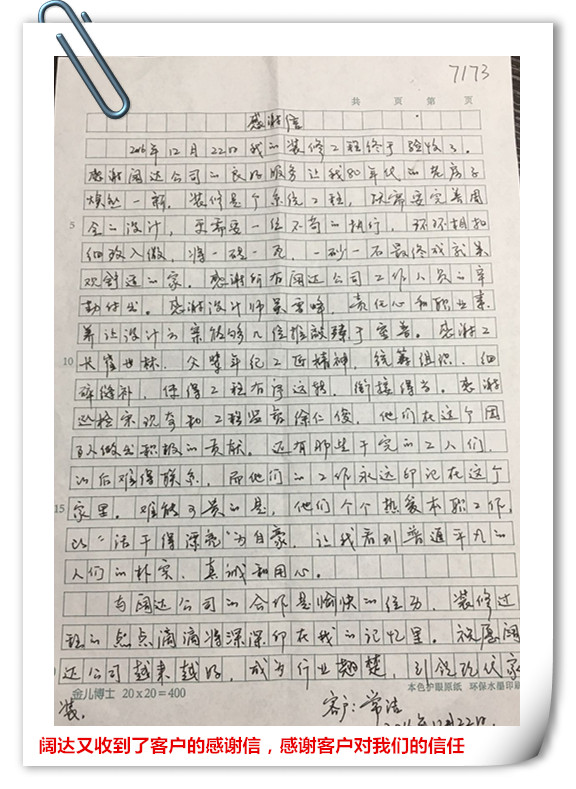 7173
共 页 第 页
感谢信
2016年12月22日我的装修工程终于验收了。
感谢阔达公司的良好服务让我80年代的老房子
焕然一新。装修是个系统工程，既需要完善周
全的设计，更需要一丝不苟的执行，环环相扣
5
细致入微，将一砖一瓦，一砂一石最终成就美
观舒适的家。感谢所有阔达公司工作人员的辛
勤付出。感谢设计师吴雪峰，责任心和职业素
养让设计方案能够几经推敲臻于至善。感谢工
长崔世林，父辈年纪工匠精神，统筹组织，细
10
碎缝补，使得工程有序运转，衔接得当。感谢
巡检宋现奇和工程监理徐仁俊，他们在这个团
队做出积极的贡献。还有那些干完的工人们，
以后难得联系，而他们的工作永远印记在这个
家里。难能可贵的是，他们个个热爱本职工作，
15
以“活干得漂亮”为自豪，让我看到普通平凡的
人们的朴实、真诚和用心。
与阔达公司的合作是愉快的经历，装修过
程的点点滴滴将深深印在我的记忆里。祝愿阔
达公司越来越好，成为行业翘楚，引领现代家
金儿博士 20×20=400
本色护眼原纸 环保水墨印刷
装。
客户：常洁
2016年12月22日
阔达又收到了客户的感谢信，感谢客户对我们的信任